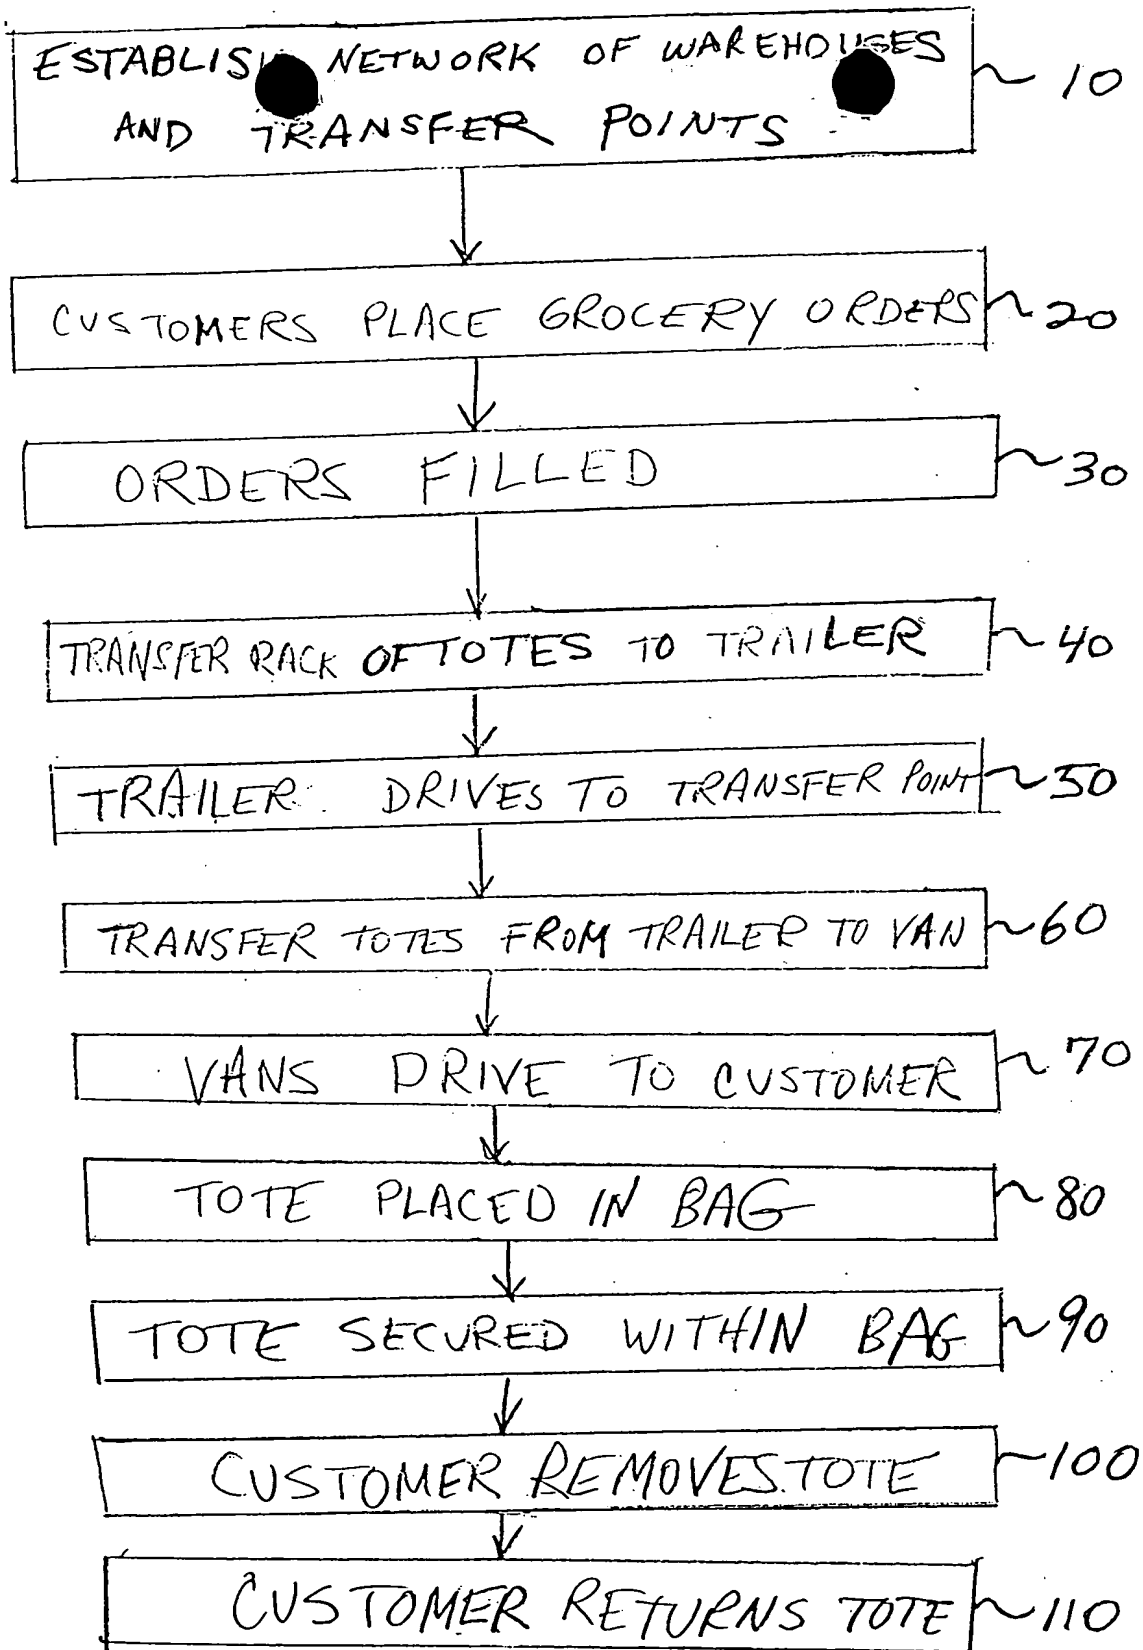 ESTABLISH NETWORK OF WAREHOUSES
AND TRANSFER POINTS
10
CUSTOMERS PLACE GROCERY ORDERS
20
ORDERS FILLED
30
TRANSFER RACK OF TOTES TO TRAILER
40
TRAILER DRIVES TO TRANSFER POINT
50
TRANSFER TOTES FROM TRAILER TO VAN
60
VANS DRIVE TO CUSTOMER
70
TOTE PLACED IN BAG
80
TOTE SECURED WITHIN BAG
90
CUSTOMER REMOVES TOTE
100
CUSTOMER RETURNS TOTE
110